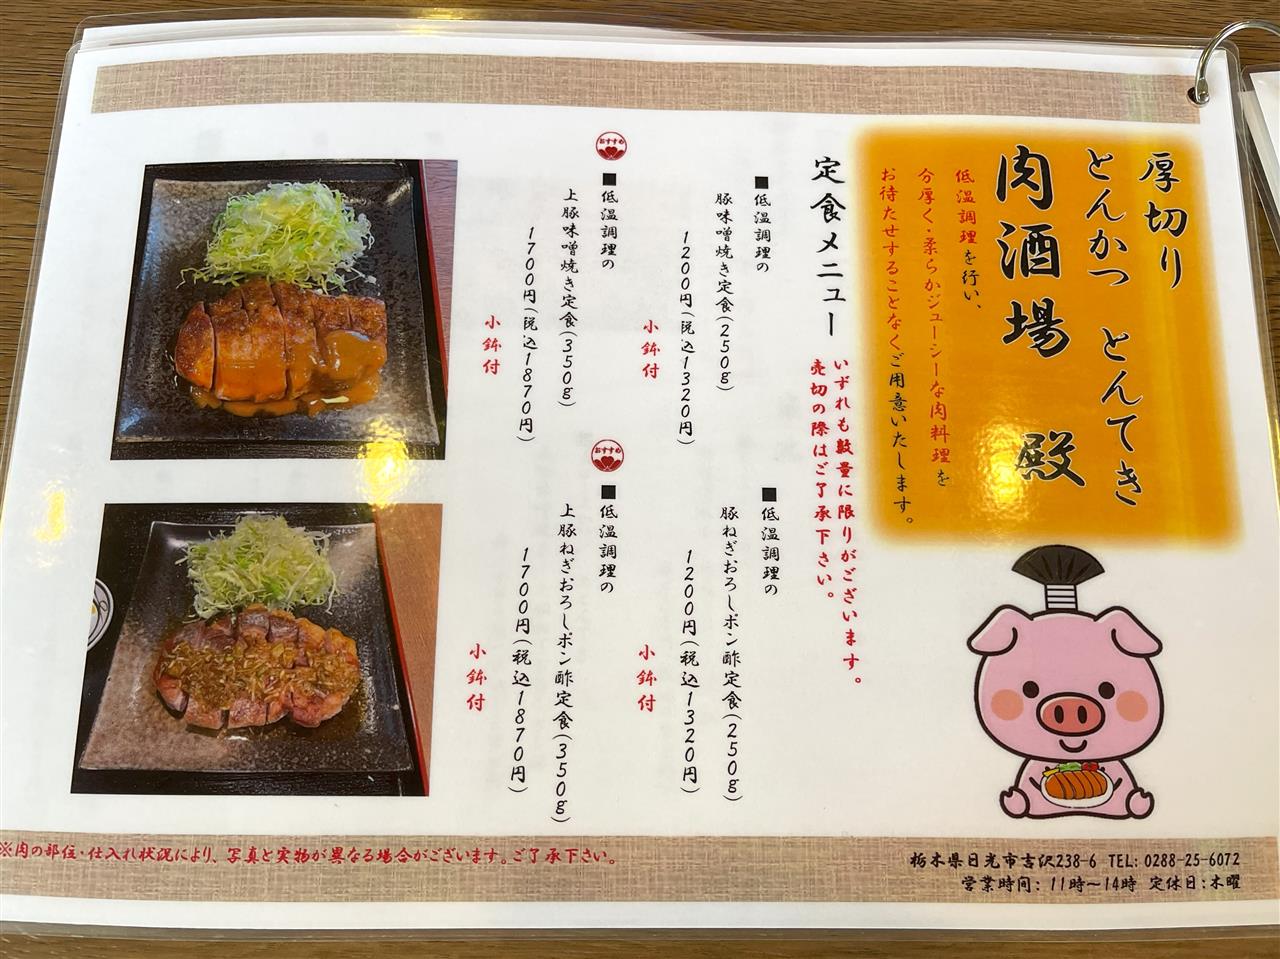 厚切り
とんかつ とんてき
肉酒場 殿
低温調理を行い、
分厚く・柔らかジューシーな肉料理を
お待たせすることなくご用意いたします。
定食メニュー
いずれも数量に限りがございます。
売切の際はご了承下さい。
■低温調理の
豚味噌焼き定食(250g)
1200円(税込1320円)
小鉢付
■低温調理の
豚ねぎおろしポン酢定食(250g)
1200円(税込1320円)
小鉢付
おすすめ
■低温調理の
上豚味噌焼き定食(350g)
1700円(税込1870円)
小鉢付
おすすめ
■低温調理の
上豚ねぎおろしポン酢定食(350g)
1700円(税込1870円)
小鉢付
※肉の部位・仕入れ状況により、写真と実物が異なる場合がございます。ご了承下さい。
栃木県日光市吉沢238-6 TEL: 0288-25-6072
営業時間: 11時～14時 定休日:木曜